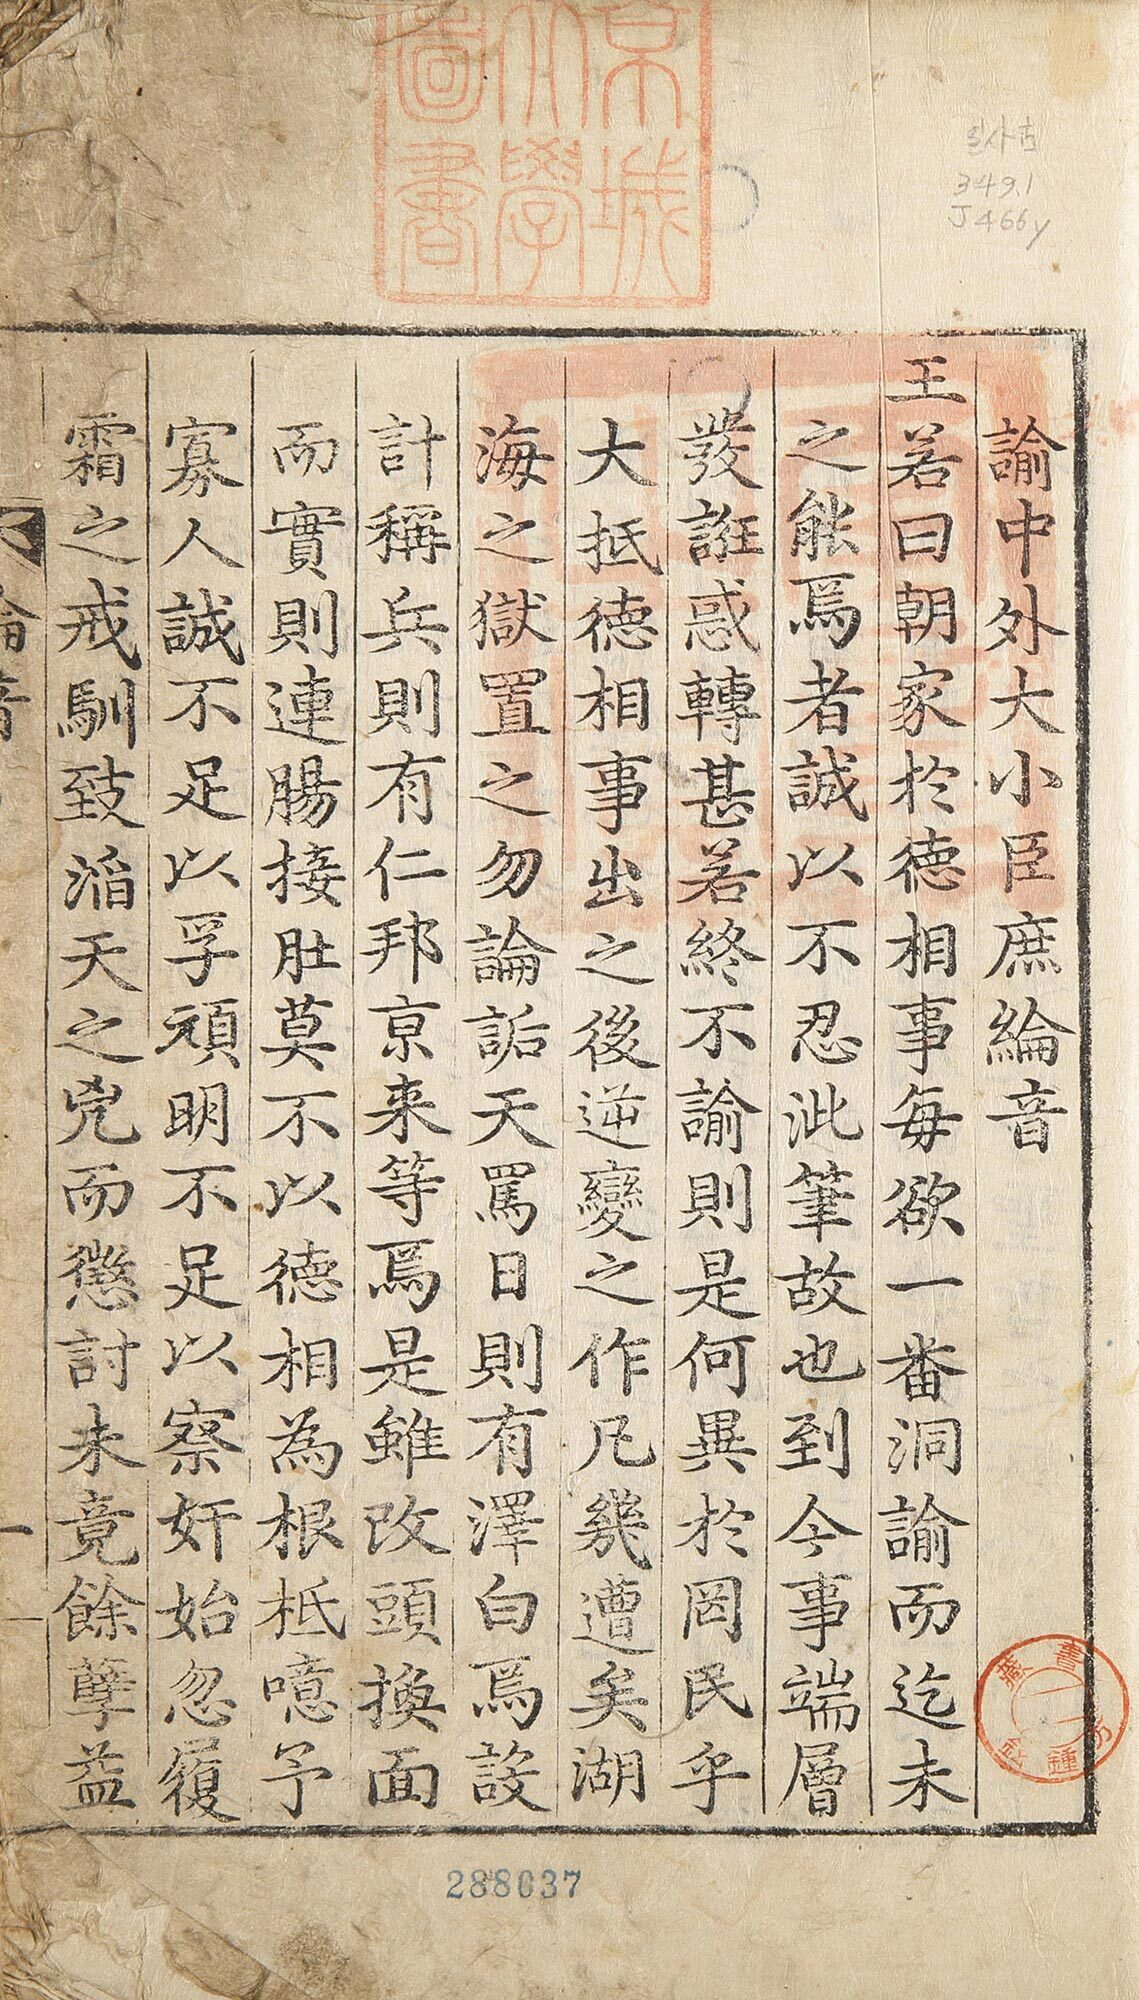 京城
大學
圖書
일사古
349.1
J466y
諭中外大小臣庶綸音
王若曰朝家於德相事每欲一番洞諭而迄未
之能焉者誠以不忍泚筆故也到今事端層
發誑惑轉甚若終不諭則是何異於罔民乎
大抵德相事出之後逆變之作凡幾遭矣湖
海之獄置之勿論詬天罵日則有澤白焉設
計稱兵則有仁邦京来等焉是雖改頭換面
而實則連腸接肚莫不以德相為根柢噫予
寡人誠不足以孚頑明不足以察奸始忽履
霜之戒馴致滔天之兇而懲討未竟餘孽益
綸音
一
288037